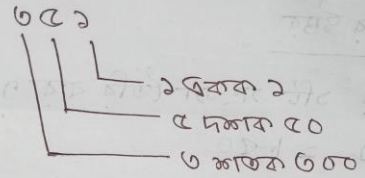 ৩৫১
১ একক ১
৫ দশক ৫০
৩ শতক ৩০০